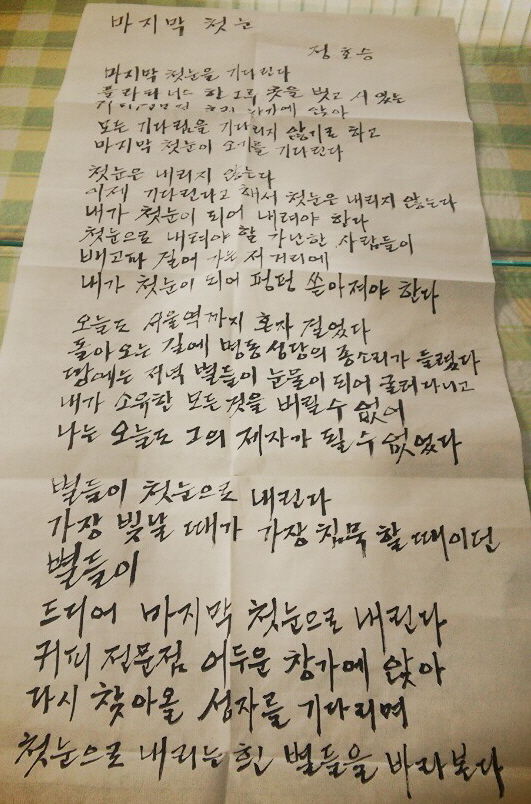 마지막 첫눈
정호승
마지막 첫눈을 기다린다
플라타너스 한 그루 옷을 벗고 서 있는
커피전문점 흐린 창가에 앉아
모든 기다림을 기다리지 않기로 하고
마지막 첫눈이 오기를 기다린다
첫눈은 내리지 않는다
이제 기다린다고 해서 첫눈은 내리지 않는다
내가 첫눈이 되어 내려야 한다
첫눈으로 내려야 할 가난한 사람들이
배고파 걸어가는 저 거리에
내가 첫눈이 되어 펑펑 쏟아져야 한다
오늘도 서울역까지 혼자 걸었다
돌아오는 길에 명동성당의 종소리가 들렸다
땅에는 저녁 별들이 눈물이 되어 굴러다니고
내가 소유한 모든것을 버릴 수 없어
나는 오늘도 그의 제자가 될 수 없었다
별들이 첫눈으로 내린다
가장 빛날 때가 가장 침묵 할 때이던
별들이
드디어 마지막 첫눈으로 내린다
커피 전문점 어두운 창가에 앉아
다시 찾아올 성자를 기다리며
첫눈으로 내리는 흰 별들을 바라본다